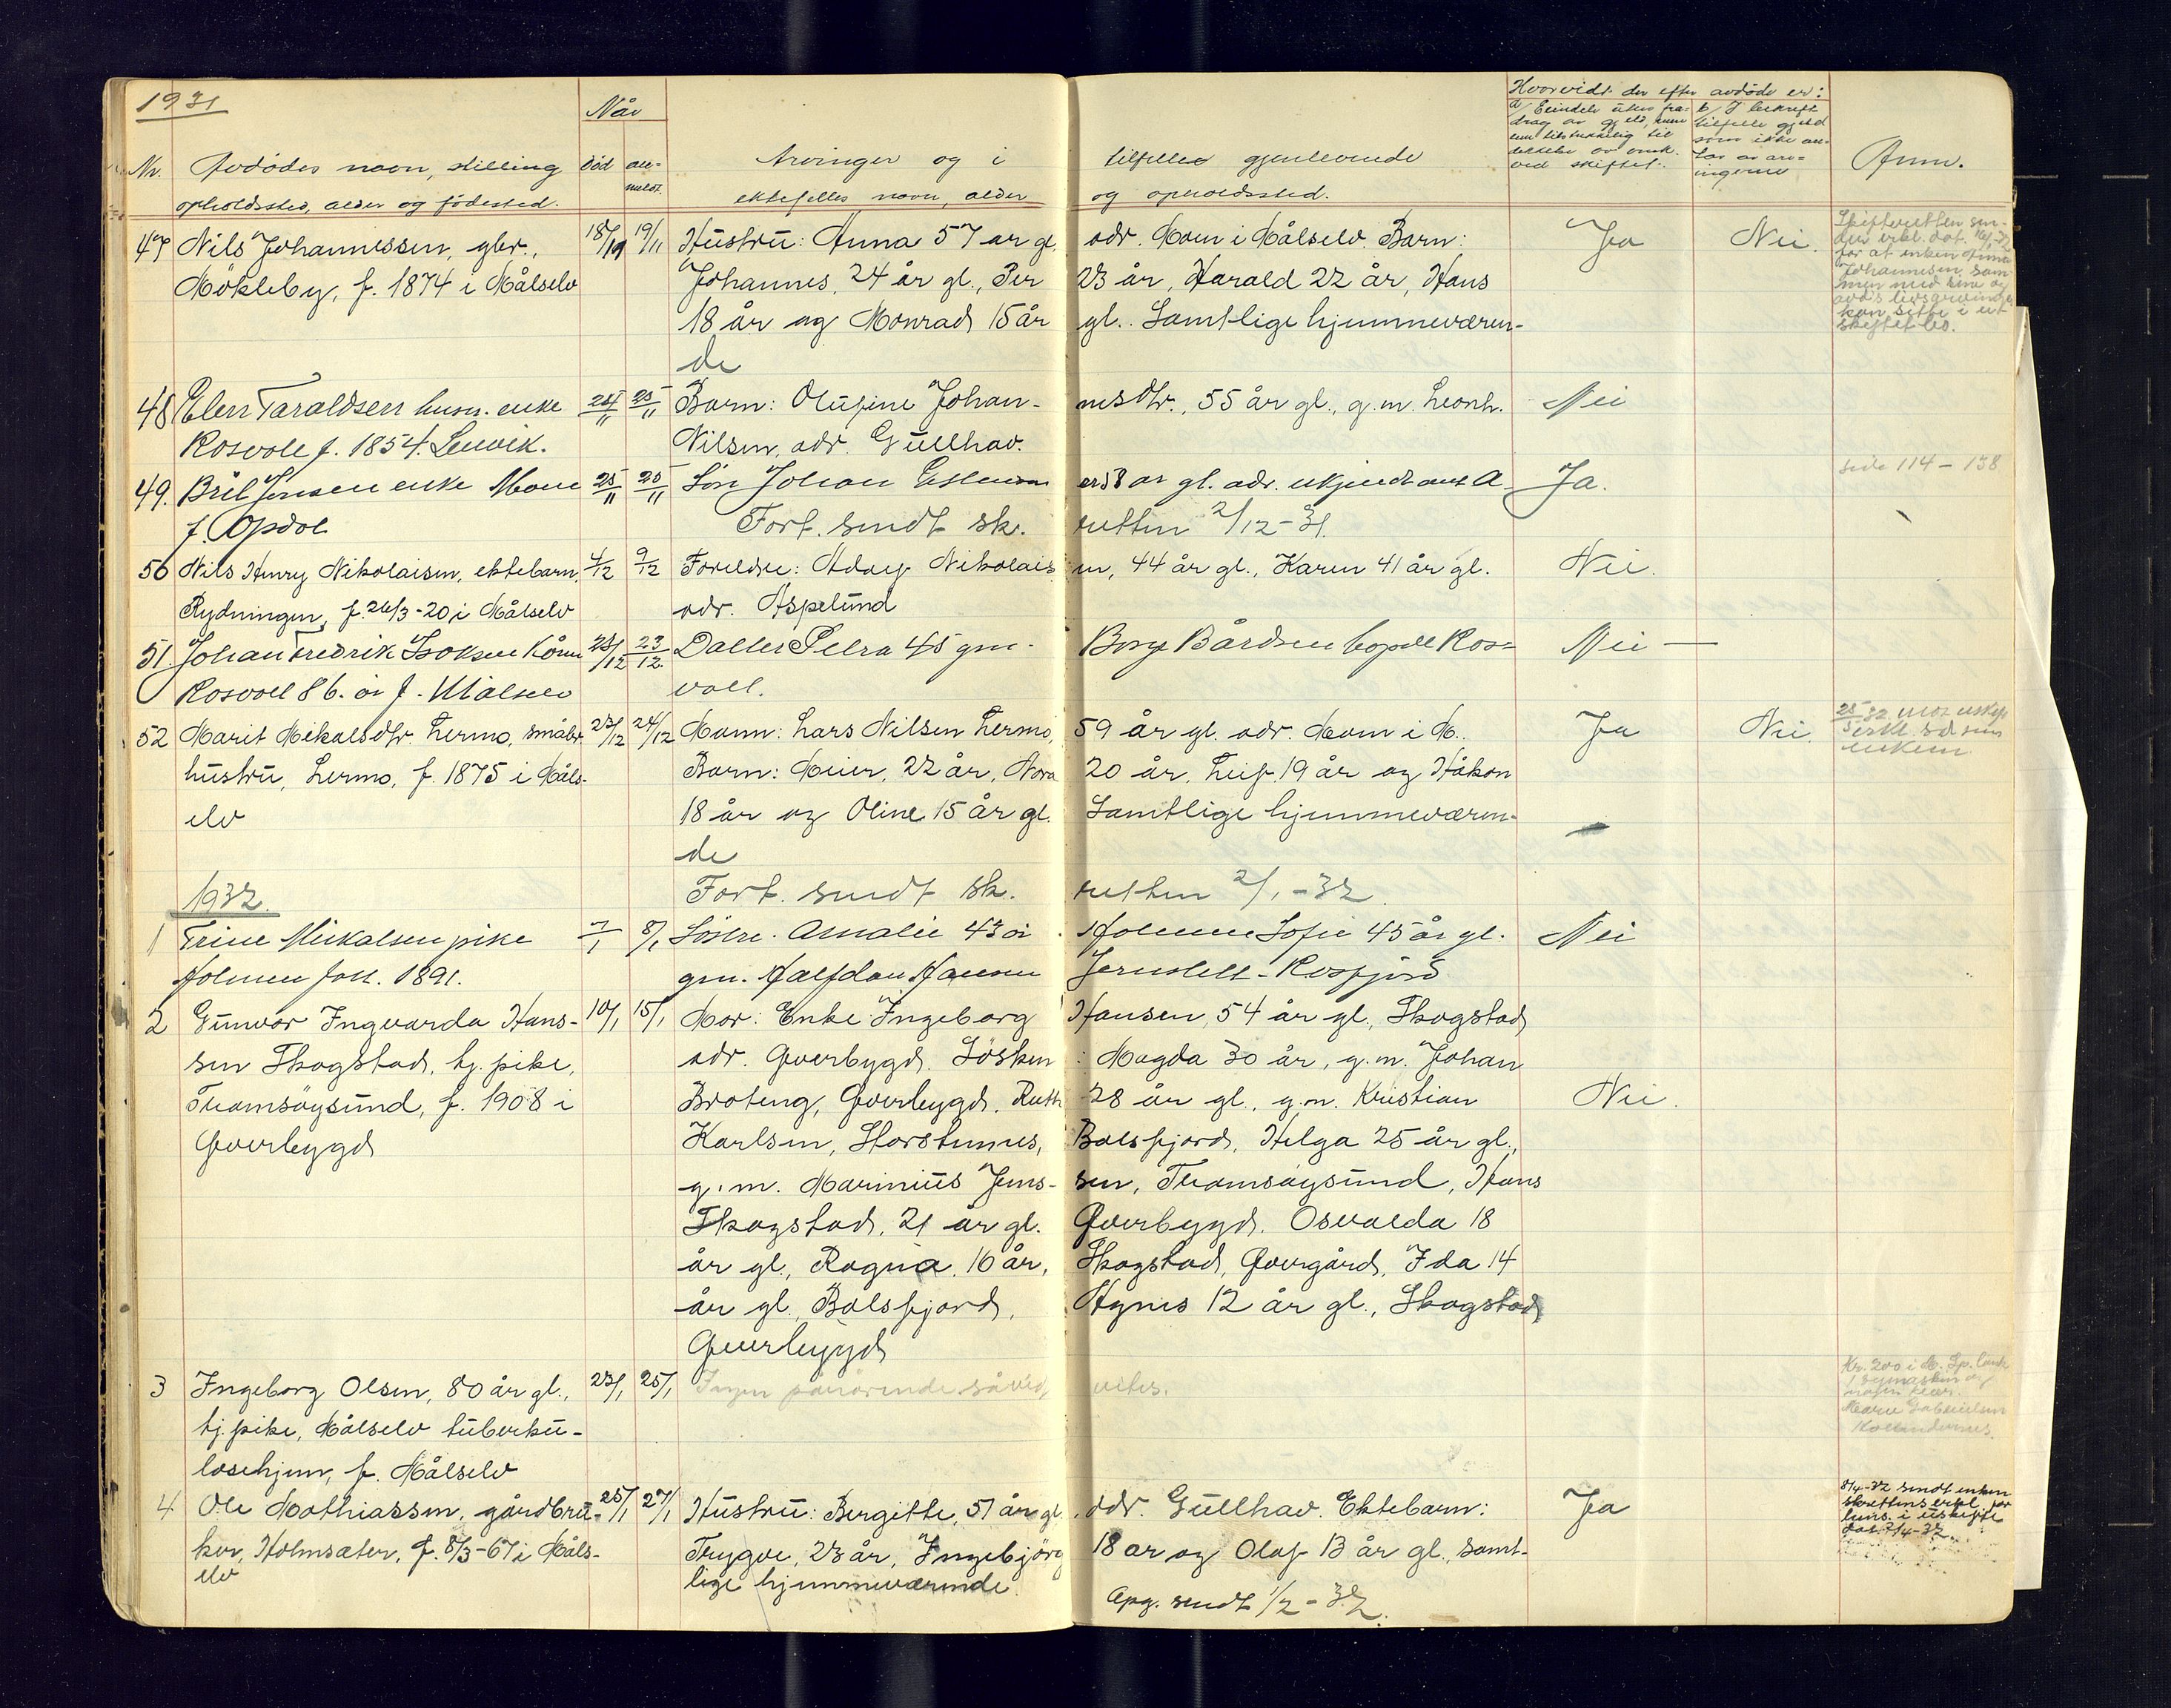 1931
Når
Hvorvidt der efter avdöde er:
Nr. Avdödes navn, stilling
opholdssted, alder og födested.
död an-
meldt.
Arvinger og i tilfelle gjenlevende
ektefelles navn, alder og opholdssted.
a/ Eiendele uten fra-
drag av gjeld, som
ved skiftet.
b/ I bekreft.
tilfelle gjeld
som ikke an-
tas av arv-
ingerne
Anm.
47 Nils Johannessen, gbr., 18/11 19/11 Hustru: Anna 57 år gl. adr. Moen i Målselv. Barn: Ja Nei.
Mökleby, f. 1874 i Målselv Johannes, 24 år gl., Per 23 år, Harald 22 år, Hans
18 år og Monrad 15 år gl. Samtlige hjemmeværen-
de
Skifteretten sen-
der erkl. dat.
for at enken Anna
Johannesen sam-
men med sine og
avds livsarvinger
kan sitte i u-
skiftet bo.
48 Elen Taraldsen husm. enke 24/11 25/11 Barn: Olufine Johan- nesdtr., 55 år gl., g.m. Leonh. Nei
Rosvoll f. 1854. Lenvik. Nilsen, adr. Gullhav.
49. Brit Jonsen enke Moen 25/11 25/11 Sön Johan Estensen 58 år gl. adr. ukjendt Ja. side 114 - 138
f. Opdal Fort. sendt sk. retten 2/12-31.
50 Nils Henry Nikolaisen, ektebarn, 4/12 9/12 Foreldre: Adolf Nikolais en, 44 år gl., Karen 41 år gl. Nei.
Rydningen, f. 26/3-20 i Målselv adr. Aspelund
51. Johan Fredrik Isaksen 23/12 23/12 Datter Petra 45 gm. Borge Bårdsen bopæl Ros= Nei —
Rosvoll 86. år f. Målselv voll.
52 Marit Mikalsdtr. Lermo, småbr. 23/12 24/12 Mann: Lars Nilsen Lermo, 59 år gl. adr. Moen i M. Ja Nei.
hustru, Lermo, f. 1875 i Måls- Barn: Meier, 22 år, Nora 20 år, Leif 19 år og Håkon
elv 18 år og Oline 15 år gl. Samtlige hjemmeværen-
de
1932. Fort. sendt sk. retten 2/1-32.
1 Trine Mikalsen pike 7/1 8/1 Söstre. Amalie 43 år Holmen Sofie 45 år gl. Nei
Holmen født. 1891. gm. Halfdan Hansen Jernslett - Rosfjord
2 Gunvor Ingvarda Hans- 10/1 15/1 Mor: Enke Ingeborg Hansen, 54 år gl., Skogstad,
sen Skogstad, tj. pike, adr. Överbygd. Sösken: Magda 30 år, g.m. Johan
Tromsöysund, f. 1908 i Broteng, Överbygd, Ruth 28 år gl., g.m. Kristian Nei.
Överbygd Karlsen, Storstennes, Balsfjord, Helga 25 år gl.,
g.m. Marinius Jens- sen, Tromsöysund, Hans
Skogstad, 21 år gl. Överbygd. Osvalda 18
år gl., Ragna 16 år, Skogstad, Övergård, Ida 14
år gl., Balsfjord, Agnes 12 år gl., Skogstad,
Överbygd
3 Ingeborg Olsen, 80 år gl., 23/1 25/1 Ingen pårörende såvidt vites.
tj. pike, Målselv tuberku-
losehjem, f. Målselv
Kr. 200 i M. Sp.bank
1 symaskin og
nogen klær.
Marie Gabrielsen
4 Ole Mathiassen, gårdbru- 25/1 27/1 Hustru: Bergitte, 51 år gl., adr. Gullhav. Ektebarn: Ja
ker, Holmsæter, f. 8/3-67 i Måls- Trygve, 23 år, Ingebjörg 18 år og Olaf 13 år gl., samt-
elv lige hjemmeværende.
Opg. sendt 1/2-32.
8/4-32 sendt enken
skrettens erkl. for
hens. i uskifte
dat. 7/4-32.